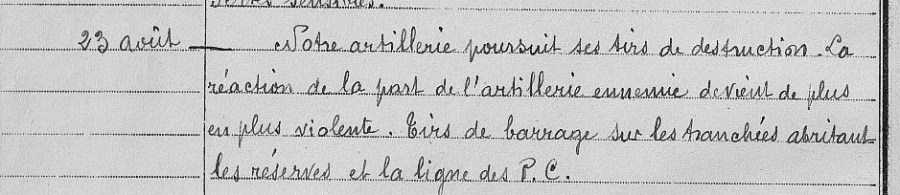 23 août — Notre artillerie poursuit ses tirs de destruction. La
réaction de la part de l'artillerie ennemie devient de plus
en plus violente. Tirs de barrage sur les tranchées abritant
les réserves et la ligne des P. C.